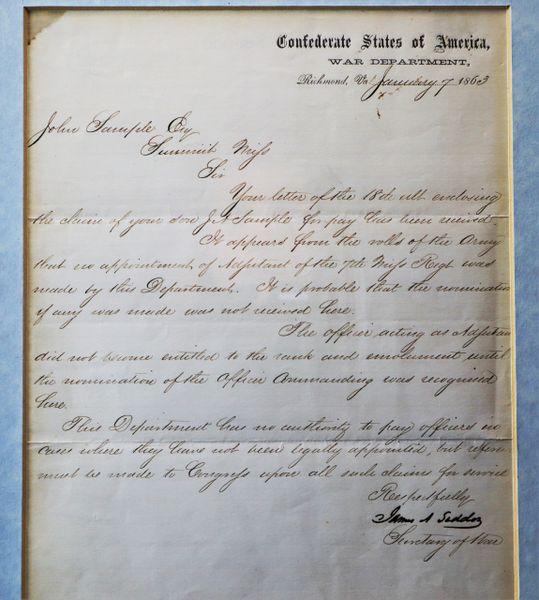 Confederate States of America,
WAR DEPARTMENT,
Richmond, Va. January 7 1863
John Sample Esq
Summit Miss
Sir
Your letter of the 18th ult enclosing
the claim of your son J A Sample for pay has been received.
It appears from the rolls of the Army
that no appointment of Adjutant of the 7th Miss Regt was
made by this Department. It is probable that the nomination
if any was made was not received here.
The officer acting as Adjutan
did not become entitled to the rank and emolument until
the nomination of the Officer Commanding was recognised
here.
This Department has no authority to pay officers in
cases where they have not been legally appointed, but referen
must be made to Congress upon all such claims for service
Respectfully
James A Seddon
Secretary of War